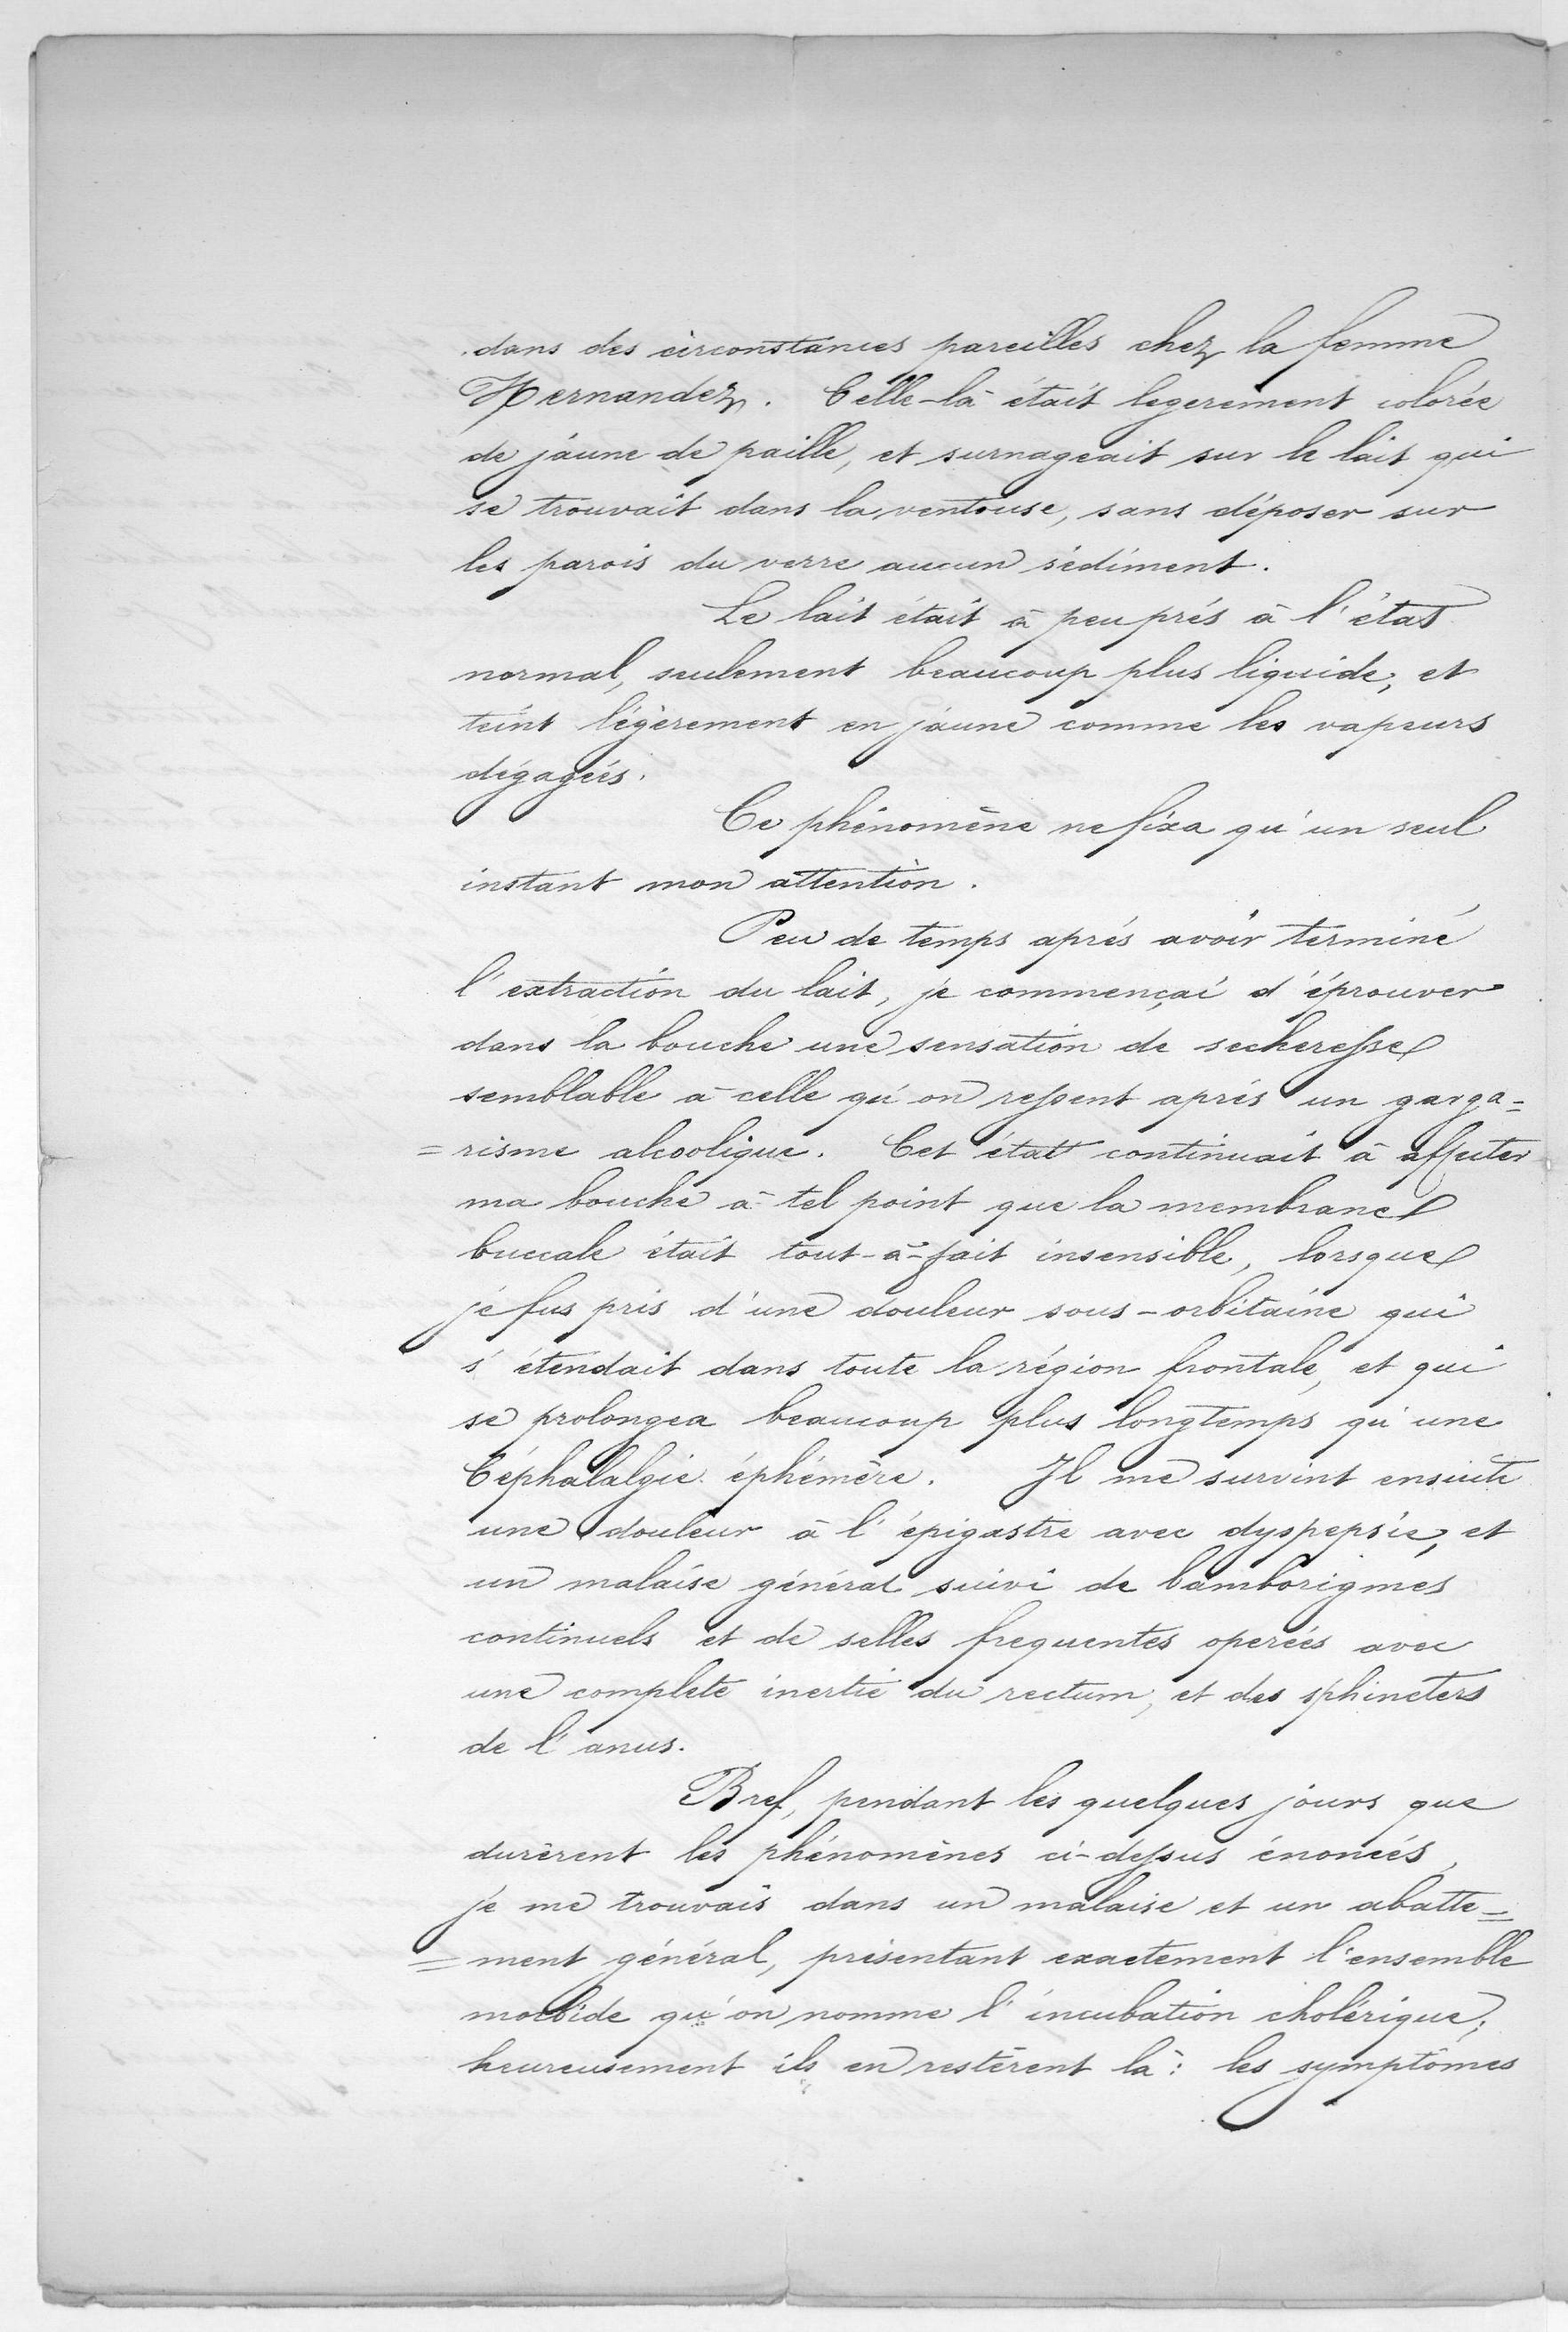 dans des circonstances pareilles chez la femme
Hernandez. Celle-là était legerement colorée
de jaune de paille, et surnageait sur le lait qui
se trouvait dans la ventouse, sans déposer sur
les parois du verre aucun sédiment.
Le lait était à peu prés à l'état
normal, seulement beaucoup plus liquide, et
teint légèrement en jaune comme les vapeurs
dégagées.
Ce phénomène ne fixa qu'un seul
instant mon attention.
Peu de temps aprés avoir terminé
l'extraction du lait, je commençai d'éprouver
dans la bouche une sensation de secheresse
semblable à celle qu'on ressent aprés un garga=
=risme alcoolique. Cet état continuait à affecter
ma bouche à tel point que la membrane
buccale était tout-à-fait insensible, lorsque
je fus pris d'une douleur sous-orbitaine qui
s'étendait dans toute la région frontale, et qui
se prolongea beaucoup plus longtemps qu'une
Céphalalgie éphémère. Il me survint ensuite
une douleur à l'épigastre avec dyspepsie, et
un malaise général suivi de bamborigmes
continuels et de selles frequentes operées avec
une complete inertie du rectum, et des sphincters
de l'anus.
Bref, pendant les quelques jours que
durèrent les phénomènes ci-dessus énoncés,
je me trouvais dans un malaise et un abatte=
=ment général, présentant exactement l'ensemble
morbide qu'on nomme l'incubation cholérique;
heureusement ils en restèrent là: les symptômes